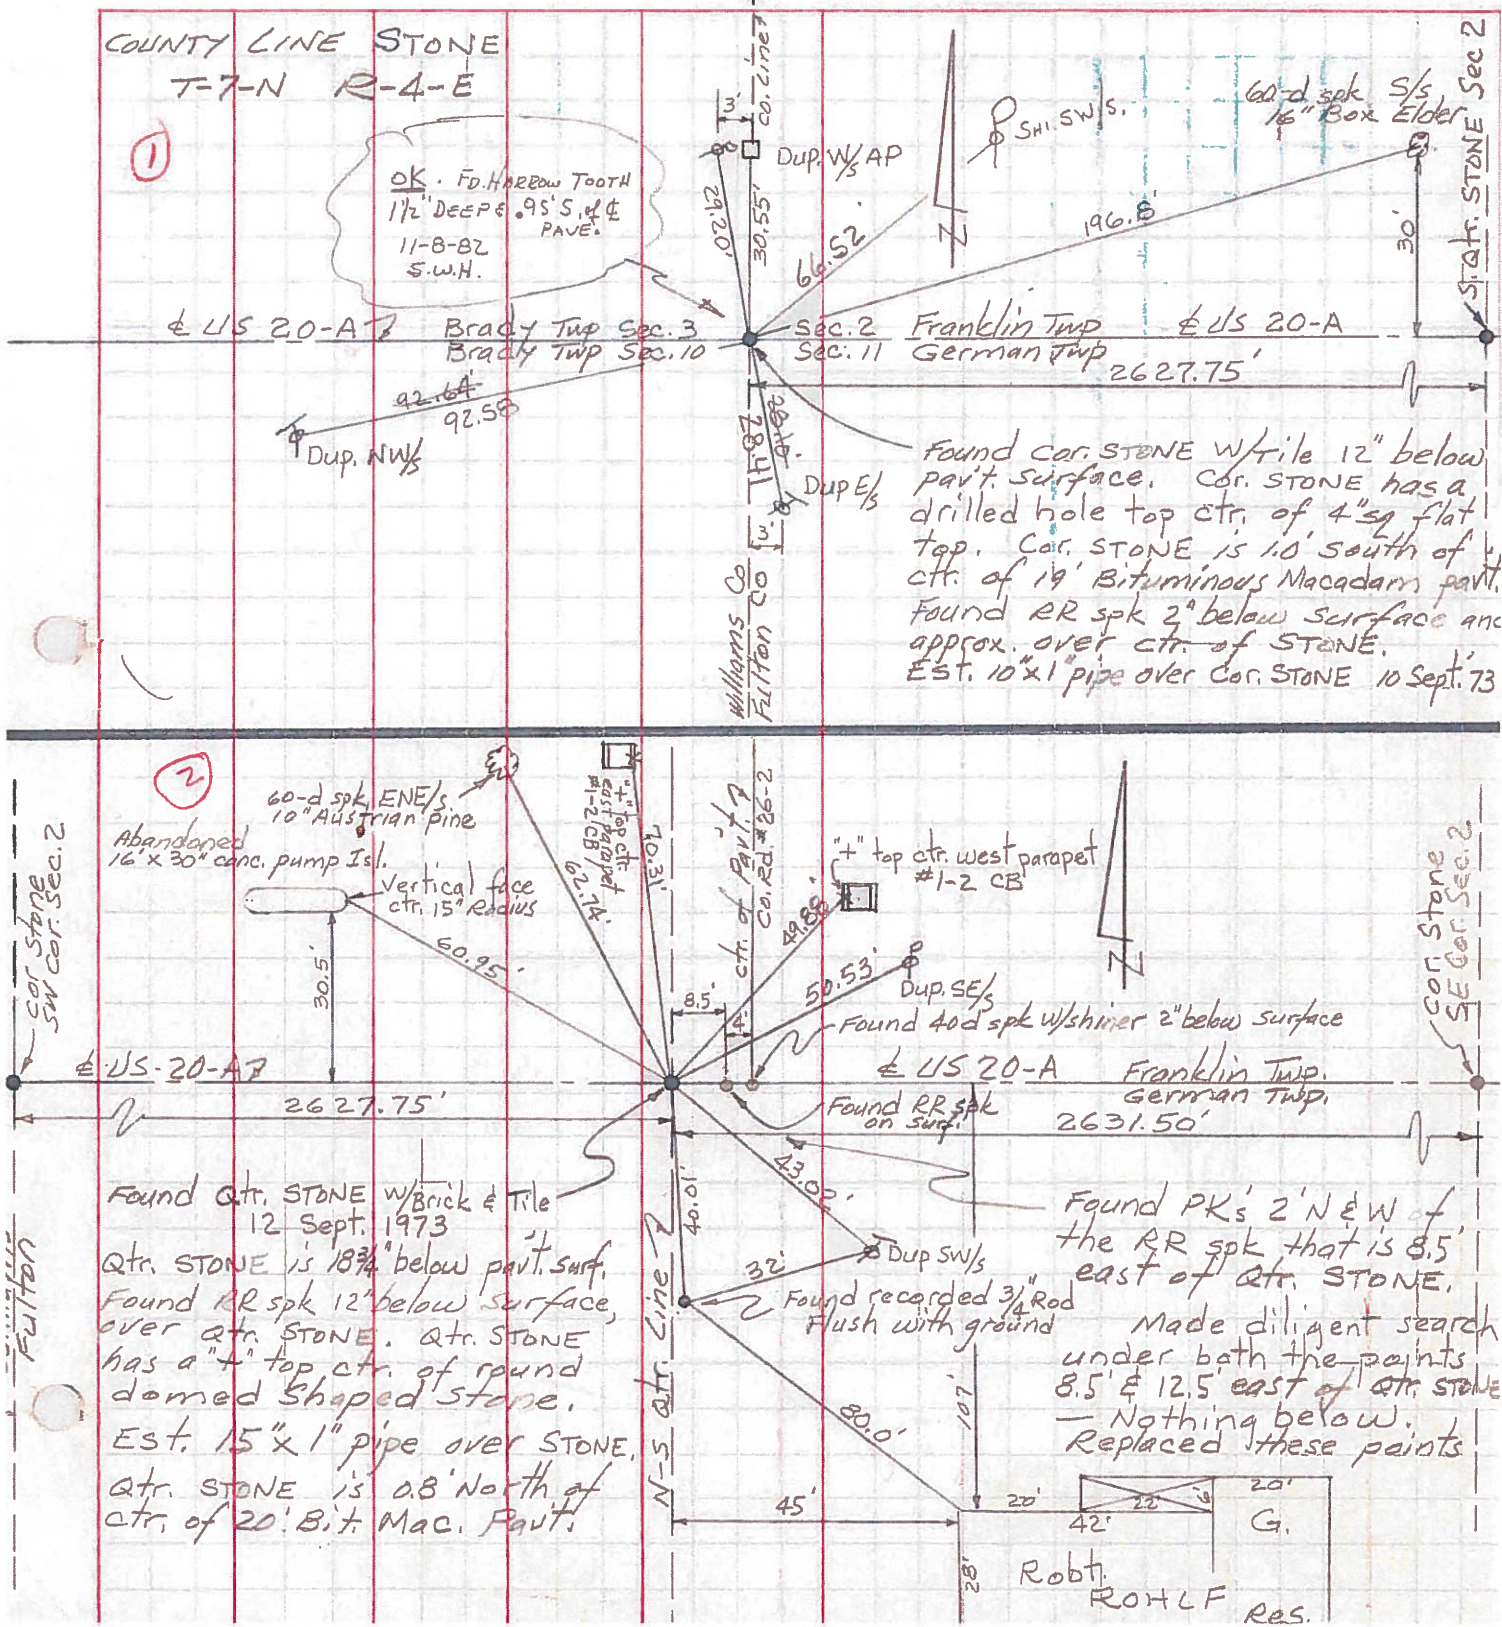 COUNTY LINE STONE
T-7-N R-4-E
1
OK. FD. HARROW TOOTH
1 1/2" DEEP & .95' S. of ℄
PAVE.
11-8-82
S.W.H.
3'
Co. Line
Dup. W/s AP
29.20'
30.55'
66.52'
SHI. SW/S.
N
60-d spk S/s
16" Box Elder
196.8'
30'
S. Qtr. STONE Sec 2
℄ US 20-A
Brady Twp Sec. 3
Brady Twp Sec. 10
Sec. 2
Sec. 11
Franklin Twp
German Twp
℄ US 20-A
2627.75'
92.64'
92.58
Dup. NW/s
Dup E/s
3'
Williams Co
Fulton Co
Found Cor. STONE W/Tile 12" below
pav't. surface. Cor. STONE has a
drilled hole top ctr. of 4" sq flat
top. Cor. STONE is 1.0' South of
ctr. of 19' Bituminous Macadam pav't.
Found RR spk 2" below surface and
approx. over ctr. of STONE.
Est. 10"x1" pipe over Cor. STONE 10 Sept. '73
2
60-d spk, ENE/s
10" Austrian pine
Abandoned
16' x 30" conc. pump Isl.
Vertical face
ctr. 15" Radius
"+" top ctr.
east parapet
#1-2 CB
62.74'
70.31'
ctr. of Pav't.
Co. Rd. #26-2
"+" top ctr. west parapet
#1-2 CB
49.88'
50.53'
Dup. SE/s
Found 40d spk W/shiner 2" below surface
60.95'
30.5'
8.5'
4'
N
cor stone
SW Cor. Sec. 2
cor. Stone
SE Cor. Sec. 2
℄ US-20-A
℄ US 20-A
Franklin Twp.
German Twp.
2627.75'
Found RR spk
on surf.
2631.50'
Found Qtr. STONE W/Brick & Tile
12 Sept. 1973
Qtr. STONE is 18 3/4" below pav't. surf.
Found RR spk 12" below surface,
over Qtr. STONE. Qtr. STONE
has a "+" top ctr. of round
domed shaped Stone.
Est. 15" x 1" pipe over STONE.
Qtr. STONE is 0.8' North of
ctr. of 20' Bit. Mac. Pav't.
Fulton
40.01'
N-S Qtr. Line
32'
Dup SW/s
Found recorded 3/4" Rod
Flush with ground
80.0'
107'
45'
Found PK's 2' N & W of
the RR spk that is 8.5'
east of Qtr. STONE.
Made diligent search
under both the points
8.5' & 12.5' east of Qtr. STONE
— Nothing below.
Replaced these points
20'
22'
6'
20'
42'
G.
28'
Robt.
ROHLF
Res.